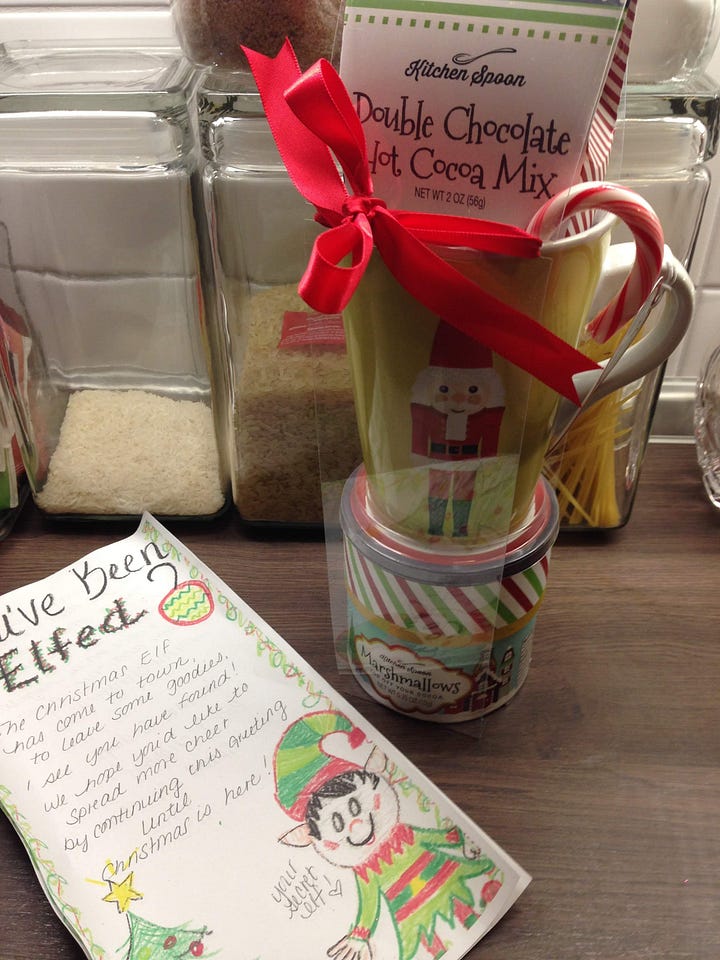 Kitchen Spoon
Double Chocolate
Hot Cocoa Mix
NET WT 2 OZ (56g)
Kitchen Spoon
Marshmallows
OFF YOUR COCOA
NET WT
u've Been
Elfed?
The Christmas Elf
has come to town,
to leave some goodies.
I see you have found!
we hope you'd like to
spread more cheer
by continuing this greeting
until
Christmas is here!
your
secret
elf!